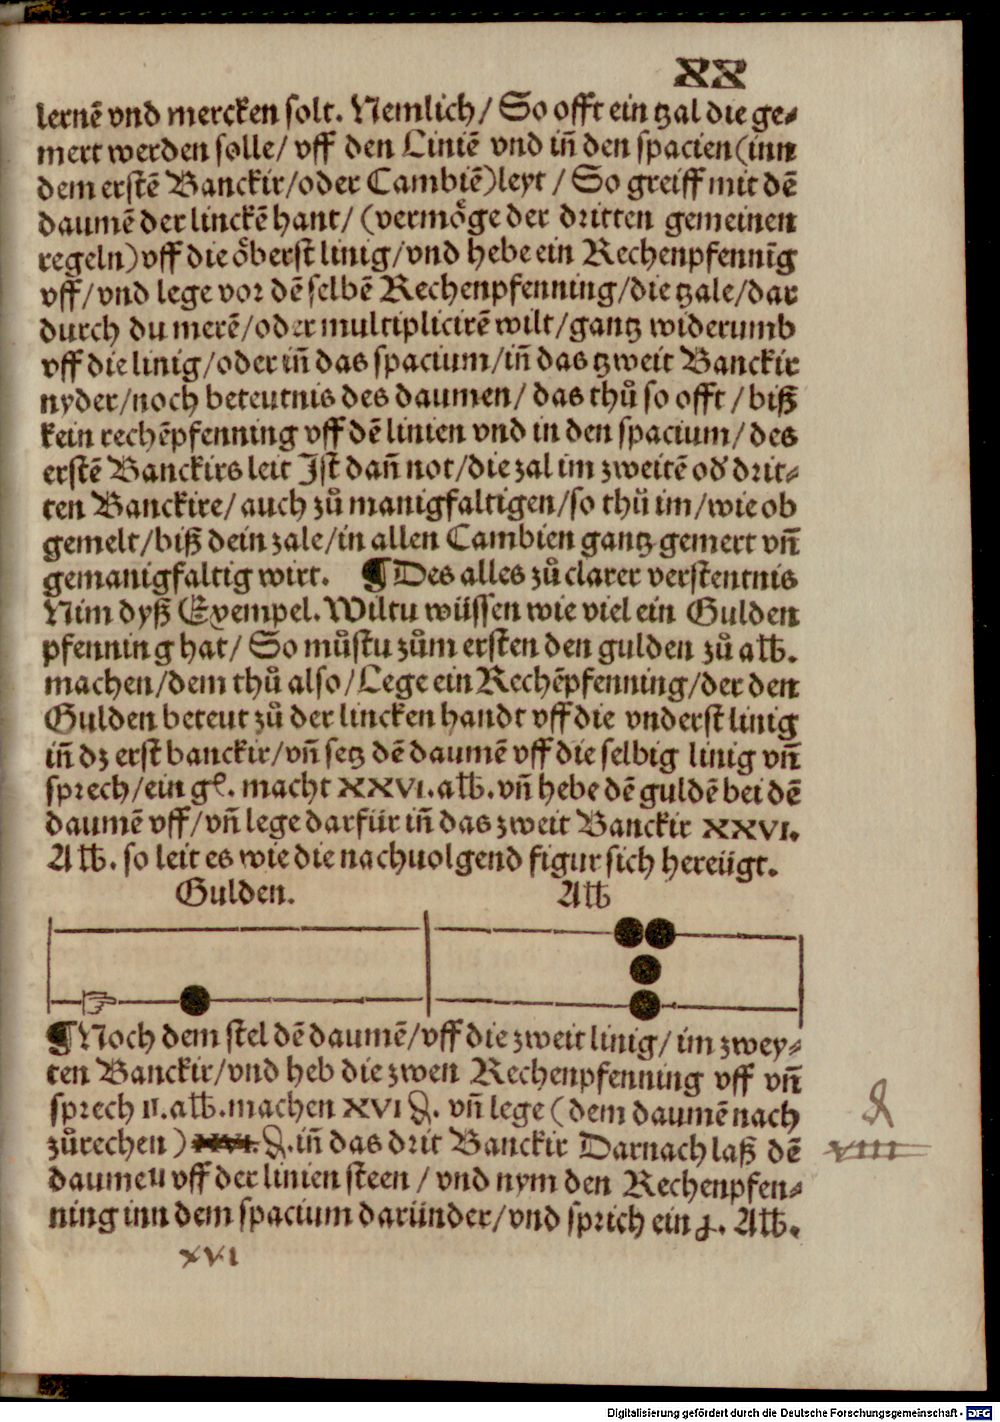 XX
lernē vnd mercken solt. Nemlich/ So offt ein tzal die ge⸗
mert werden solle/ vff den Liniē vnd iñ den spacien (inn
dem erstē Banckir/oder Cambiē) leyt / So greiff mit dē
daumē der linckē hant/ (vermöge der dritten gemeinen
regeln) vff die öberst linig/vnd hebe ein Rechenpfennīg
vff/vnd lege vor dē selbē Rechenpfenning/die tzale/dar
durch du merē/oder multiplicirē wilt/gantz widerumb
vff die linig/oder iñ das spacium/iñ das tzweit Banckir
nyder/noch beteutnis des daumen/ das thů so offt / biß
kein rechēpfenning vff dē linien vnd in den spacium/ des
erstē Banckirs leit Jst dañ not/die zal im zweitē od' drit⸗
ten Banckire/ auch zů manigfaltigen/so thů im/wie ob
gemelt/biß dein zale/in allen Cambien gantz gemert vñ
gemanigfaltig wirt. ¶ Des alles zů clarer verstentnis
Nim dyß Exempel. Wiltu wüssen wie viel ein Gulden
pfenning hat/ So můstu zům ersten den gulden zů alb.
machen/dem thů also/Lege ein Rechēpfenning/der den
Gulden beteut zů der lincken handt vff die vnderst linig
iñ dz erst banckir/vñ setz dē daumē vff die selbig linig vñ
sprech/ein gl. macht XXVI. alb. vñ hebe dē guldē bei dē
daumē vff/vñ lege darfür iñ das zweit Banckir XXVI.
Alb. so leit es wie die nachuolgend figur sich hereügt.
Gulden. Alb
¶ Noch dem stel dē daumē/vff die zweit linig/ im zwey⸗
ten Banckir/vnd heb die zwen Rechenpfenning vff vñ
sprech II. alb. machen XVI ₰. vñ lege (dem daumē nach
zůrechen) XVI. ₰. iñ das drit Banckir Darnach laß dē
₰
VIII
daumen vff der linien steen / vnd nym den Rechenpfen⸗
ning inn dem spacium daründer/vnd sprich ein ɟ. Alb.
xvi
Digitalisierung gefördert durch die Deutsche Forschungsgemeinschaft - DFG